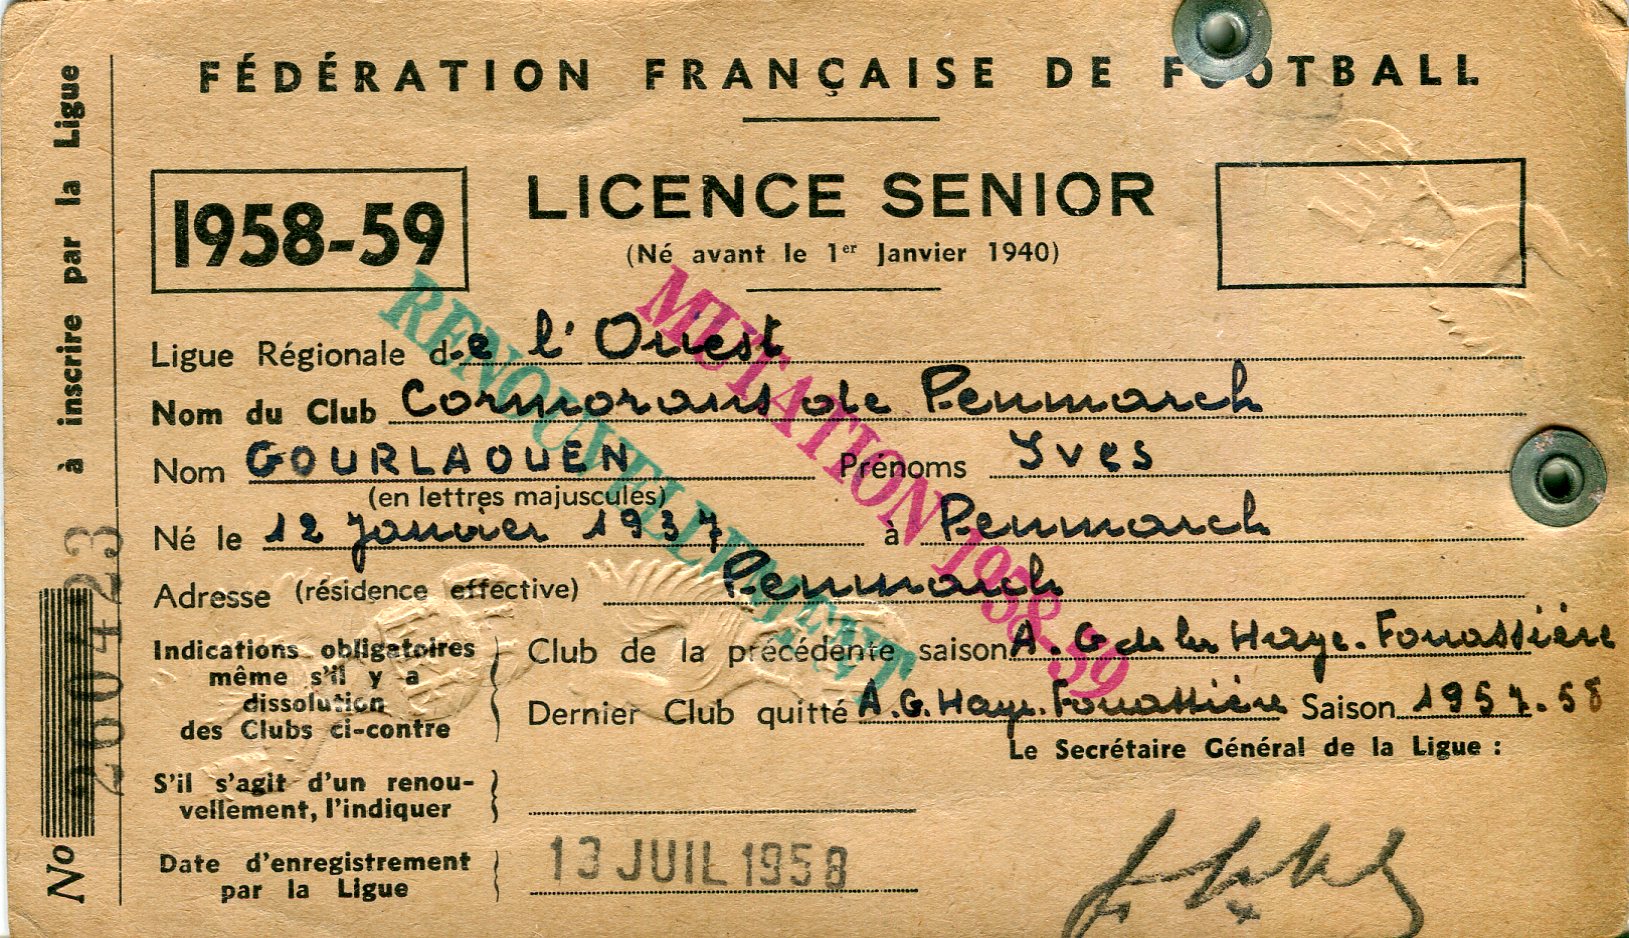 FÉDÉRATION FRANÇAISE DE FOOTBALL
1958-59
LICENCE SENIOR
(Né avant le 1er Janvier 1940)
RENOUVELLEMENT
MUTATION 1958-59
Ligue Régionale de l'Ouest
Nom du Club Cormorans de Penmarch
Nom GOURLAOUEN Prénoms Yves
(en lettres majuscules)
Né le 12 janvier 1937 à Penmarch
Adresse (résidence effective) Penmarch
Indications obligatoires
même s'il y a
dissolution
des Clubs ci-contre
Club de la précédente saison A.G de la Haye-Fouassière
Dernier Club quitté A.G. Haye-Fouassière Saison 1957-58
Le Secrétaire Général de la Ligue :
S'il s'agit d'un renou-
vellement, l'indiquer
Date d'enregistrement
par la Ligue
13 JUIL 1958
No 260423
à inscrire par la Ligue